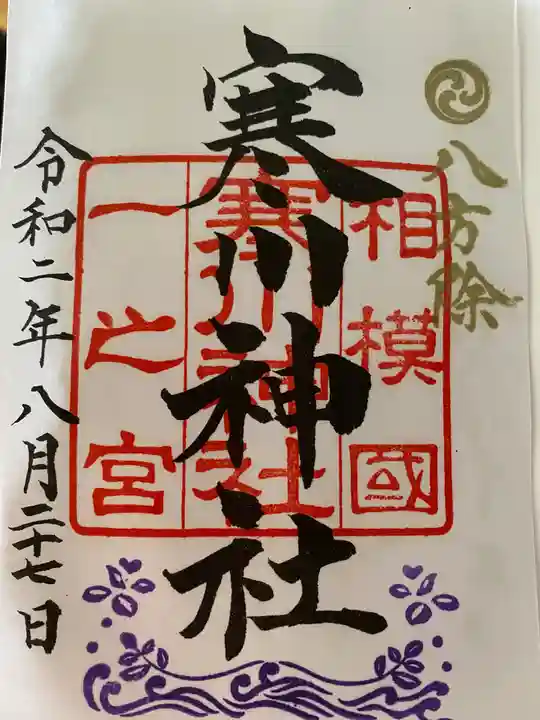 八方除
寒川神社
相模國
寒川神社
一之宮
令和二年八月二十七日